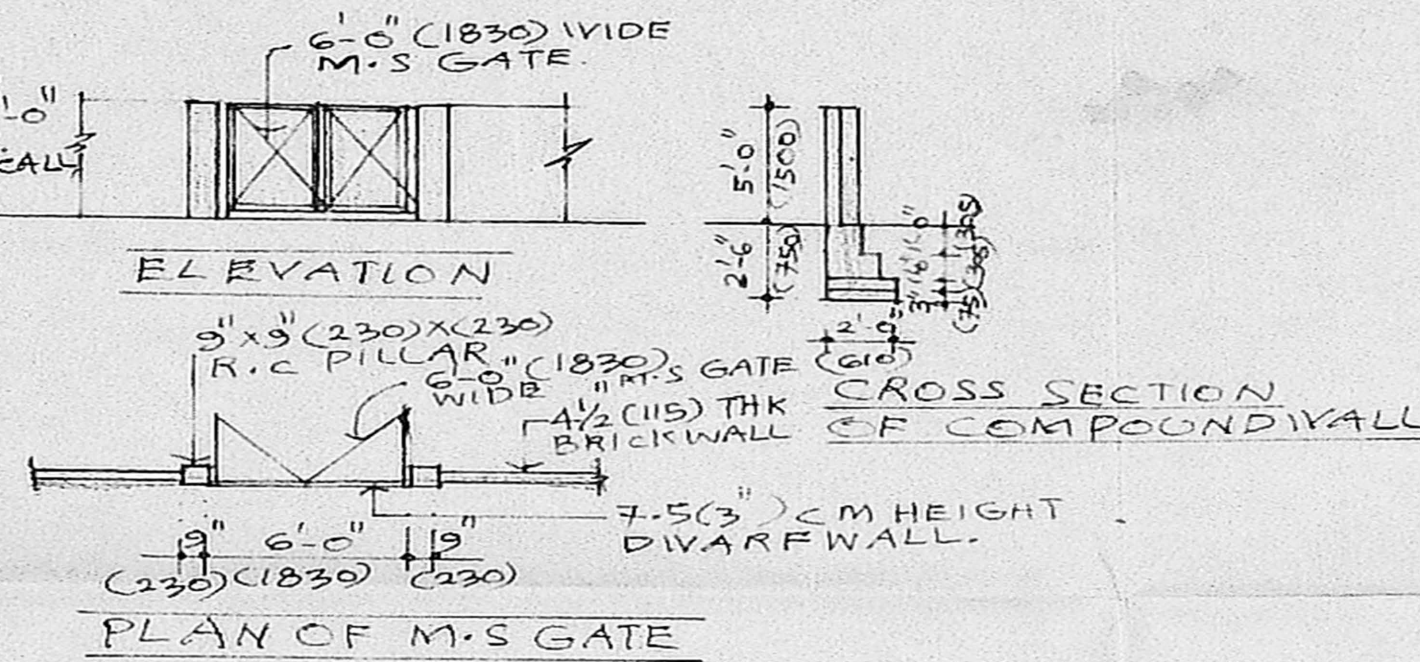 6'-0" (1830) WIDE
M.S GATE.
'-0"
5'-0"
(1500)
2'-6"
(750)
ELEVATION
3"
(75)
(305)
(305)
2'-0"
(610)
CROSS SECTION
OF COMPOUNDWALL
9"x9"(230)X(230)
R.C PILLAR
6-0" (1830) M.S GATE
WIDE
4½" (115) THK
BRICKWALL
7.5(3") CM HEIGHT
DWARFWALL.
9" 6'-0" 9"
(230)(1830) (230)
PLAN OF M.S GATE